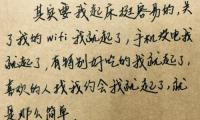 其实要我起床挺容易的,关
了我的wifi我就起了,手机没电我
就起了,有特别好吃的我就起了,
喜欢的人找我约会我就起了,就
是那么简单.